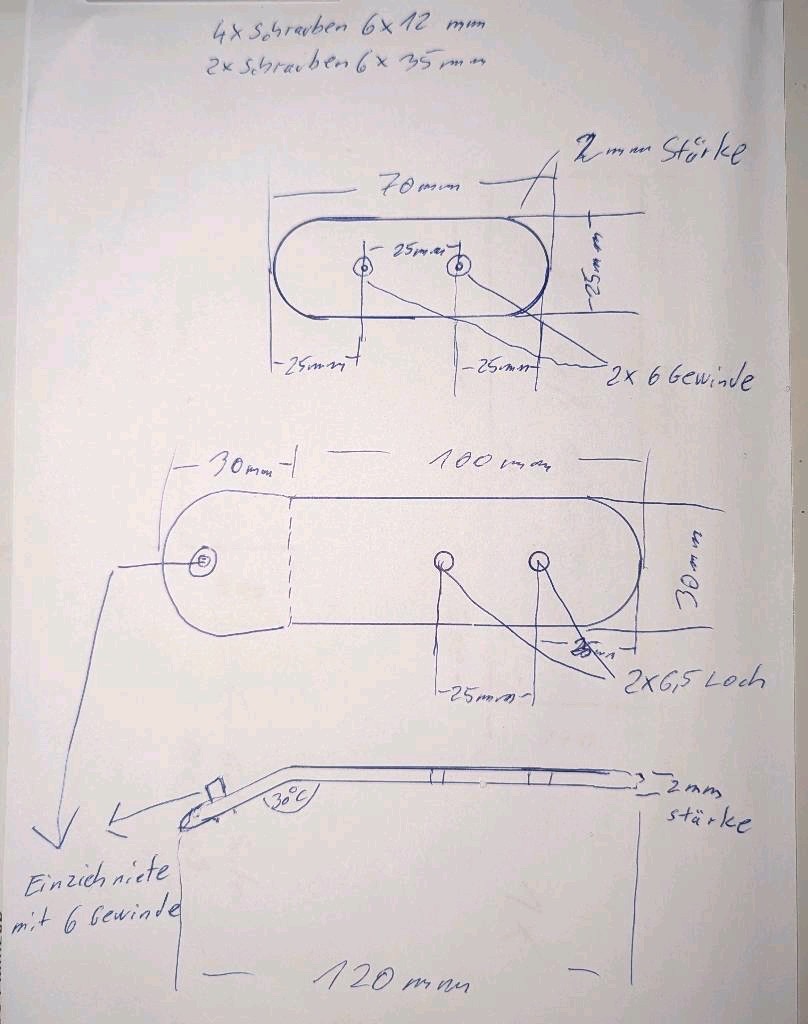 4x Schrauben 6x12 mm
2x Schrauben 6x 35mm
2mm Stärke
70mm
25mm
25mm
25mm
25mm
2x 6 Gewinde
30mm
100mm
30mm
25mm
25mm
2x6,5 Loch
30°C
2mm
stärke
Einziehniete
mit 6 Gewinde
120mm